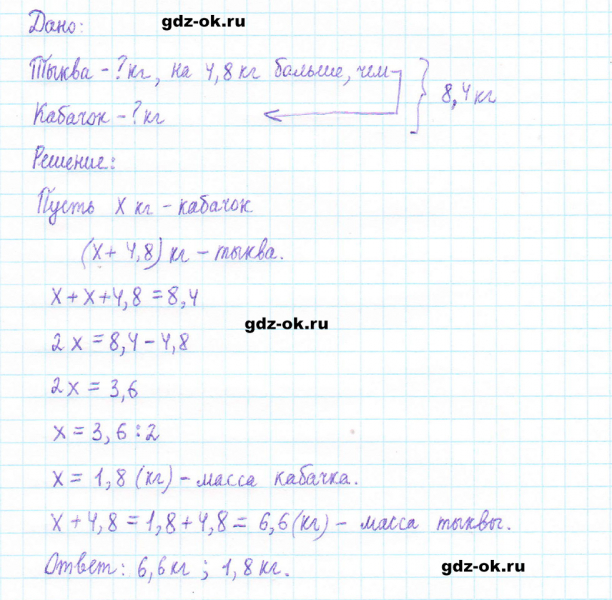 gdz-ok.ru
Дано:
Тыква - ? кг, на 4,8 кг больше, чем
8,4 кг
Кабачок - ? кг
Решение:
Пусть x кг - кабачок
(x + 4,8) кг - тыква.
x + x + 4,8 = 8,4
gdz-ok.ru
2x = 8,4 - 4,8
2x = 3,6
x = 3,6 : 2
x = 1,8 (кг) - масса кабачка.
x + 4,8 = 1,8 + 4,8 = 6,6 (кг) - масса тыквы.
Ответ: 6,6 кг ; 1,8 кг.
gdz-ok.ru